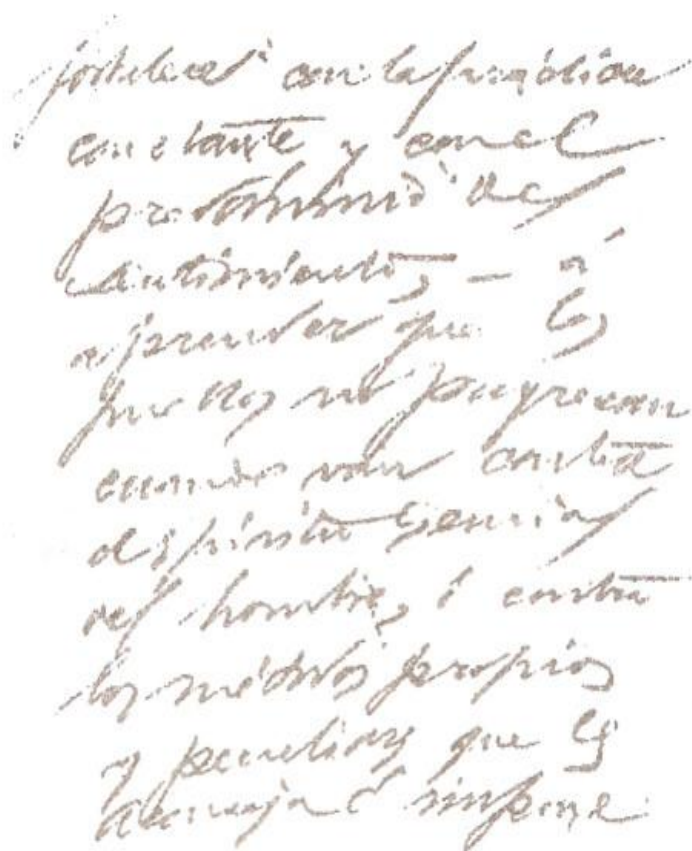 fortalecer con la práctica
constante y con el
predominio del
sentimiento, – á
aprender que los
pueblos no progresan
cuando van contra
el espíritu esencial
del hombre, ó contra
los métodos propios
y peculiares que les
aconseja é impone